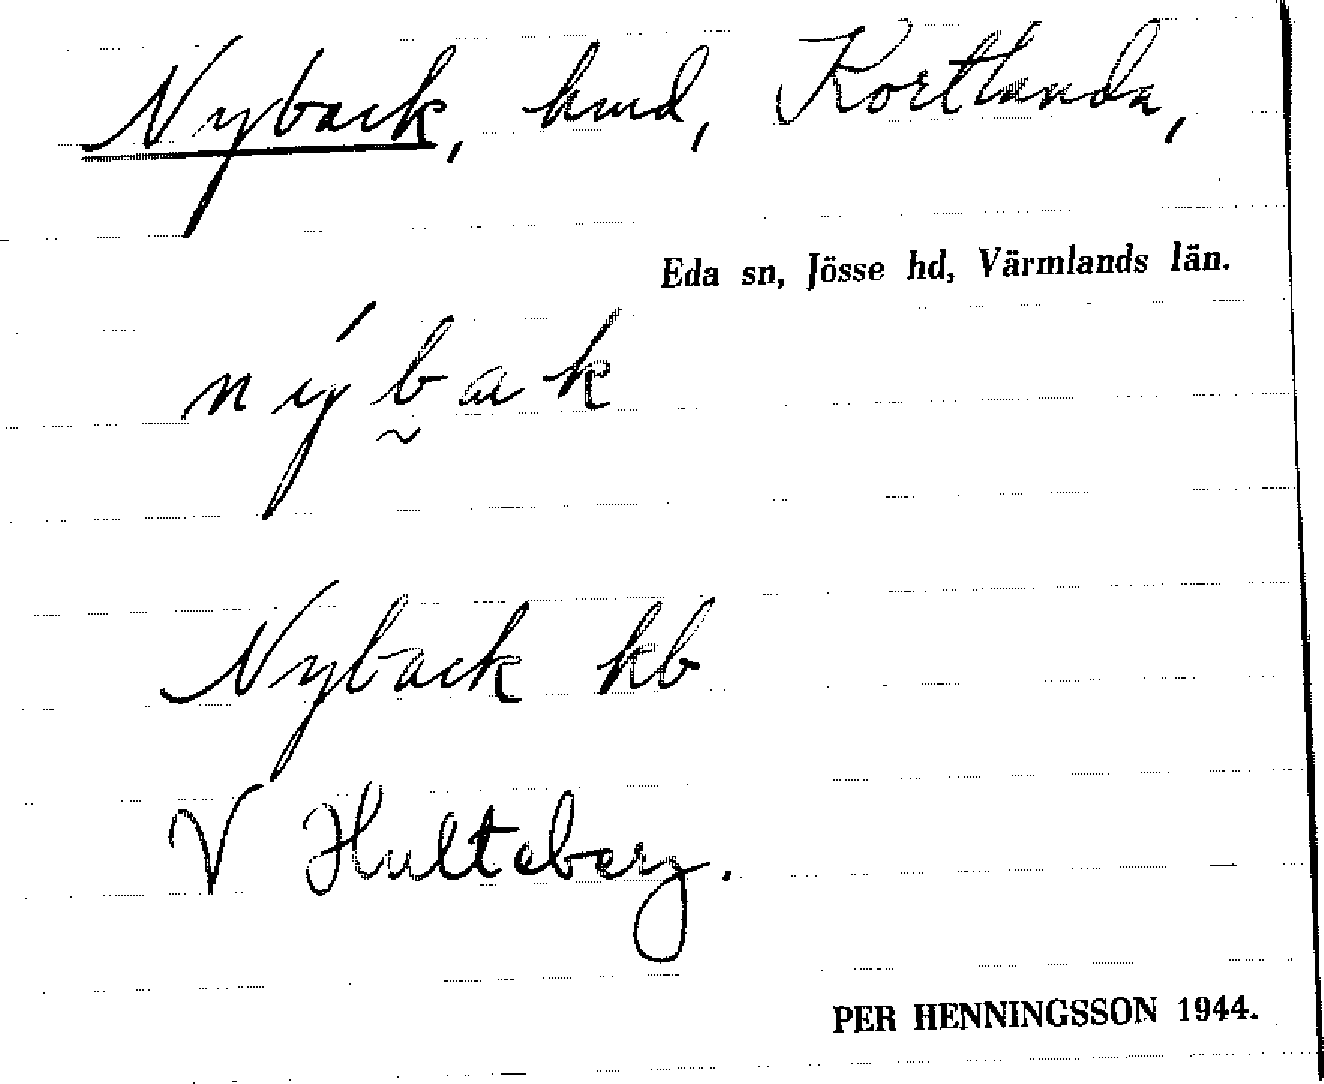 Nyback, hmd, Kortlanda,
Eda sn, Jösse hd, Värmlands län.
nýbak
Nyback kb
V Hulteberg.
PER HENNINGSSON 1944.